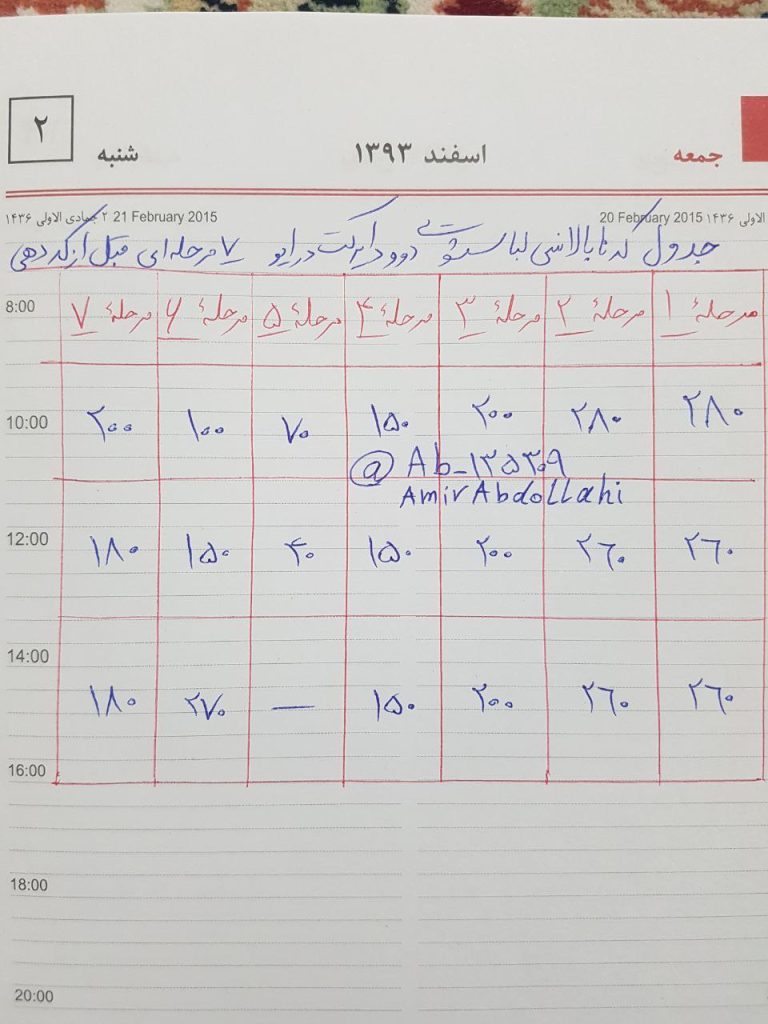 ۲
شنبه اسفند ۱۳۹۳ جمعه
۱۴۳۶ جمادی الاولی ۲ 21 February 2015 20 February 2015 ۱۴۳۶ الاولی
جدول کد تا بالانسی لباسشویی دوو دایرکت درایو ۷ مرحله‌ای قبل از کد دهی
8:00 مرحلۀ ۱ مرحلۀ ۲ مرحلۀ ۳ مرحلۀ ۴ مرحلۀ ۵ مرحلۀ ۶ مرحلۀ ۷
10:00 ۲۸۰ ۲۸۰ ۲۰۰ ۱۵۰ ۷۰ ۱۰۰ ۲۰۰
@Ab_135309
AmirAbdollahi
12:00 ۲۶۰ ۲۶۰ ۲۰۰ ۱۵۰ ۴۰ ۱۵۰ ۱۸۰
14:00 ۲۶۰ ۲۶۰ ۲۰۰ ۱۵۰ — ۲۷۰ ۱۸۰
16:00
18:00
20:00